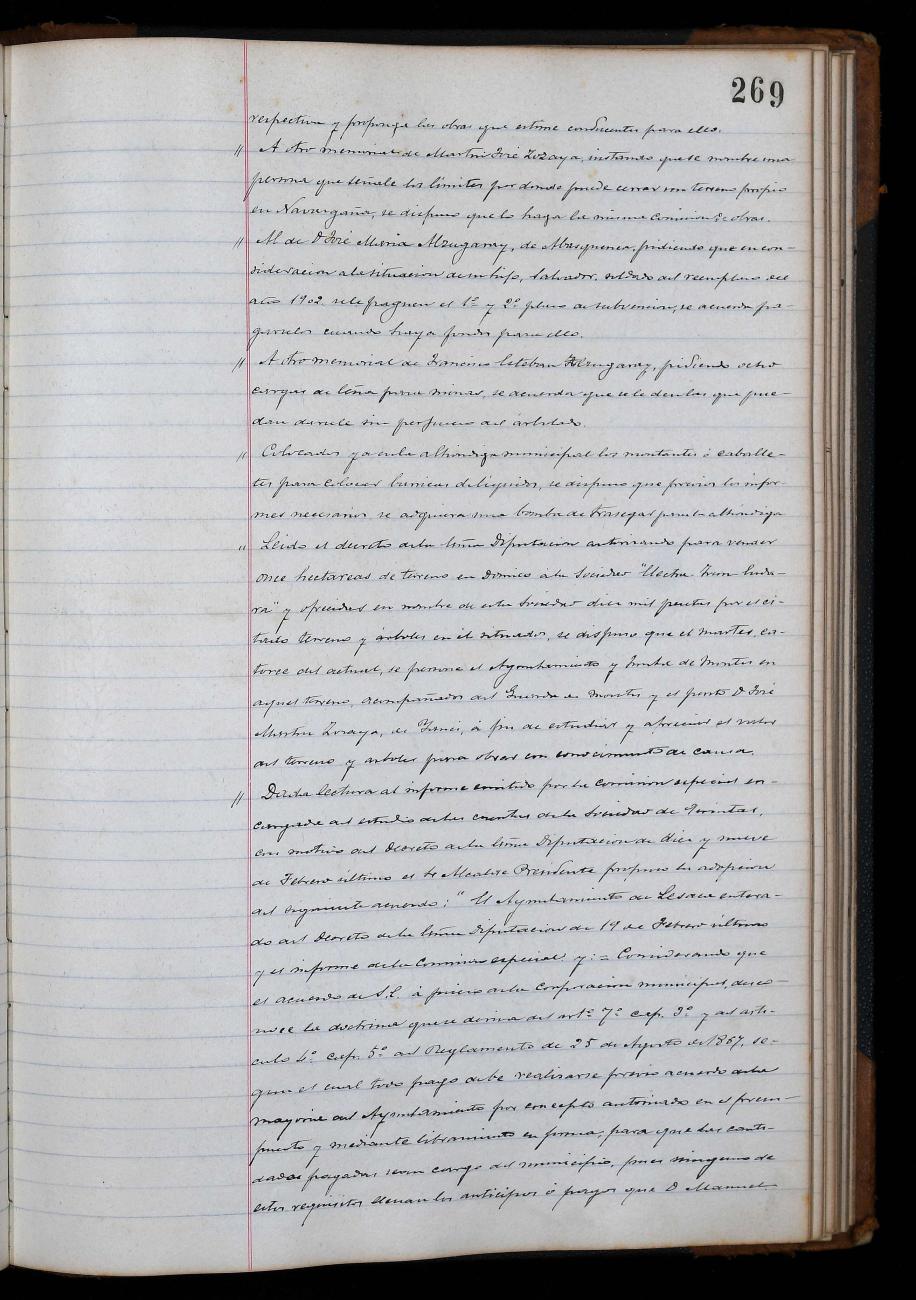 269
respectiva y proponga las obras que estime conducentes para ello.
" A otro memorial de Martin José Zozaya, instando que se nombre una
persona que señale los límites por donde puede cerrar un terreno propio
en Navazgaña, se dispuso que lo haga la misma Comision de obras.
" Al de D José Maria Alzugaray, de, pidiendo que en con-
sideracion a la situacion de su hijo, Salvador, soldado del reemplazo del
año 1902, se le paguen el 1º y 2º plazo de subvencion, se acuerda pa-
garselos cuando haya fondos para ello.
" A otro memorial de Francisco Esteban Alzugaray, pidiendo ocho
cargas de leña para minas, se acuerda que se le den las que pue-
dan darsele sin perjuicio del arbolado.
" Colocados ya en la alhondiga municipal los montantes ó caballe-
tes para colocar barricas de liquidos, se dispuso que previos los infor-
mes necesarios se adquiera una bomba de trasegar para la alhondiga
" Leido el decreto de la Exma Diputacion autorizando para vender
once hectareas de terreno en Domico á la Sociedad "Electra Irun Enda-
ra" y ofrecidas en nombre de esta Sociedad diez mil pesetas por el ci-
tado terreno y árboles en él situados, se dispuso que el martes, ca-
torce del actual, se persone el Ayuntamiento y Junta de Montes en
aquel terreno, acompañados del Guarda de Montes y el perito D José
Martin Zozaya, de Yanci, á fin de estudiar y apreciar el valor
del terreno y arboles para obrar con conocimiento de causa.
" Dada lectura al informe emitido por la comision especial en-
cargada del estudio de las cuentas de la Sociedad de,
con motivo del Decreto de la Exma Diputacion de diez y nueve
de Febrero último el Sr Alcalde Presidente propuso la adopcion
del siguiente acuerdo: "El Ayuntamiento de Lesaca entera-
do del Decreto de la Exma Diputacion de 19 de Febrero último
y el informe de la Comision especial y:= Considerando que
el acuerdo de S.E. á juicio de la Corporacion municipal, desco-
noce la doctrina que se deriva del artº 7º cap. 3º y del artí-
culo 4º cap. 5º del Reglamento de 25 de Agosto de 1867, se-
gun el cual todo pago debe realizarse previo acuerdo de la
mayoria del Ayuntamiento por concepto autorizado en el presu-
puesto y mediante libramiento en forma, para que las canti-
dades pagadas sean cargo del municipio, pues ninguno de
estos requisitos llenan los anticipos ó pagos que D Manuel